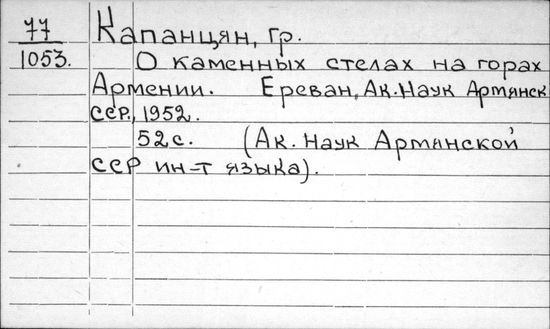 77
1053.
Капанцян, Гр.
О каменных стелах на горах
Армении. Ереван, Ак. Наук Армянск
ССР, 1952.
52 с. (Ак. Наук Армянской
ССР ин-т языка).